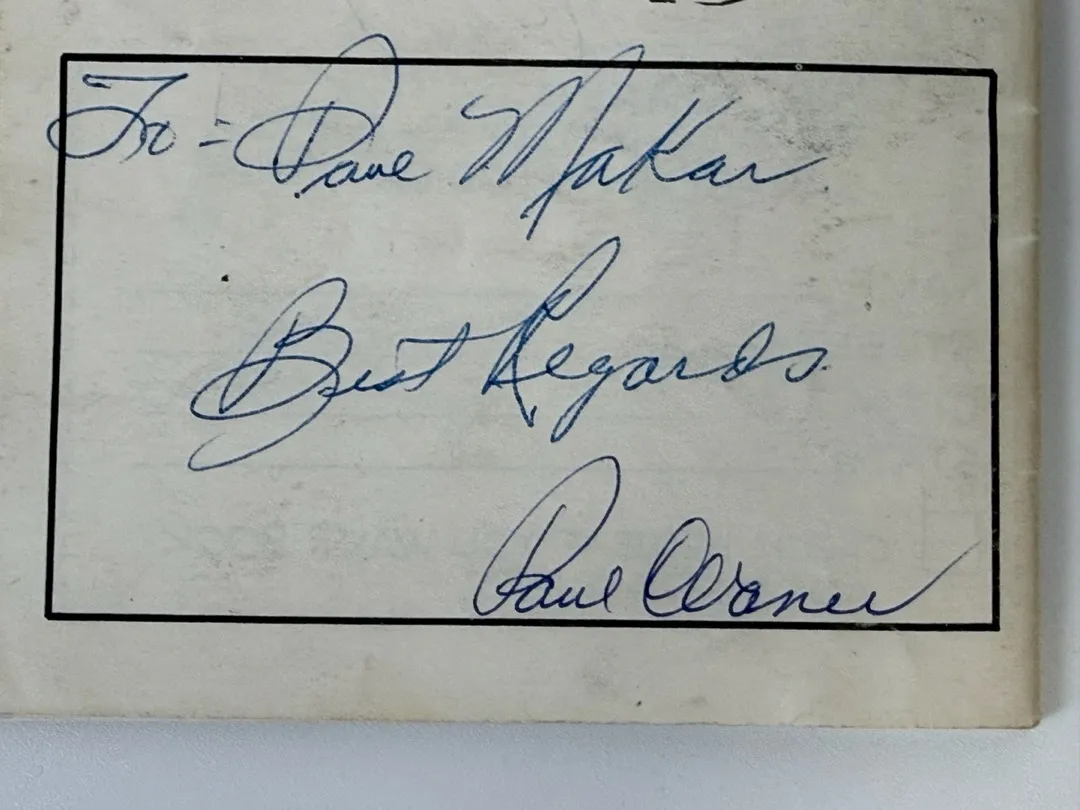 To = Dave MaKar
Best Regards
Paul